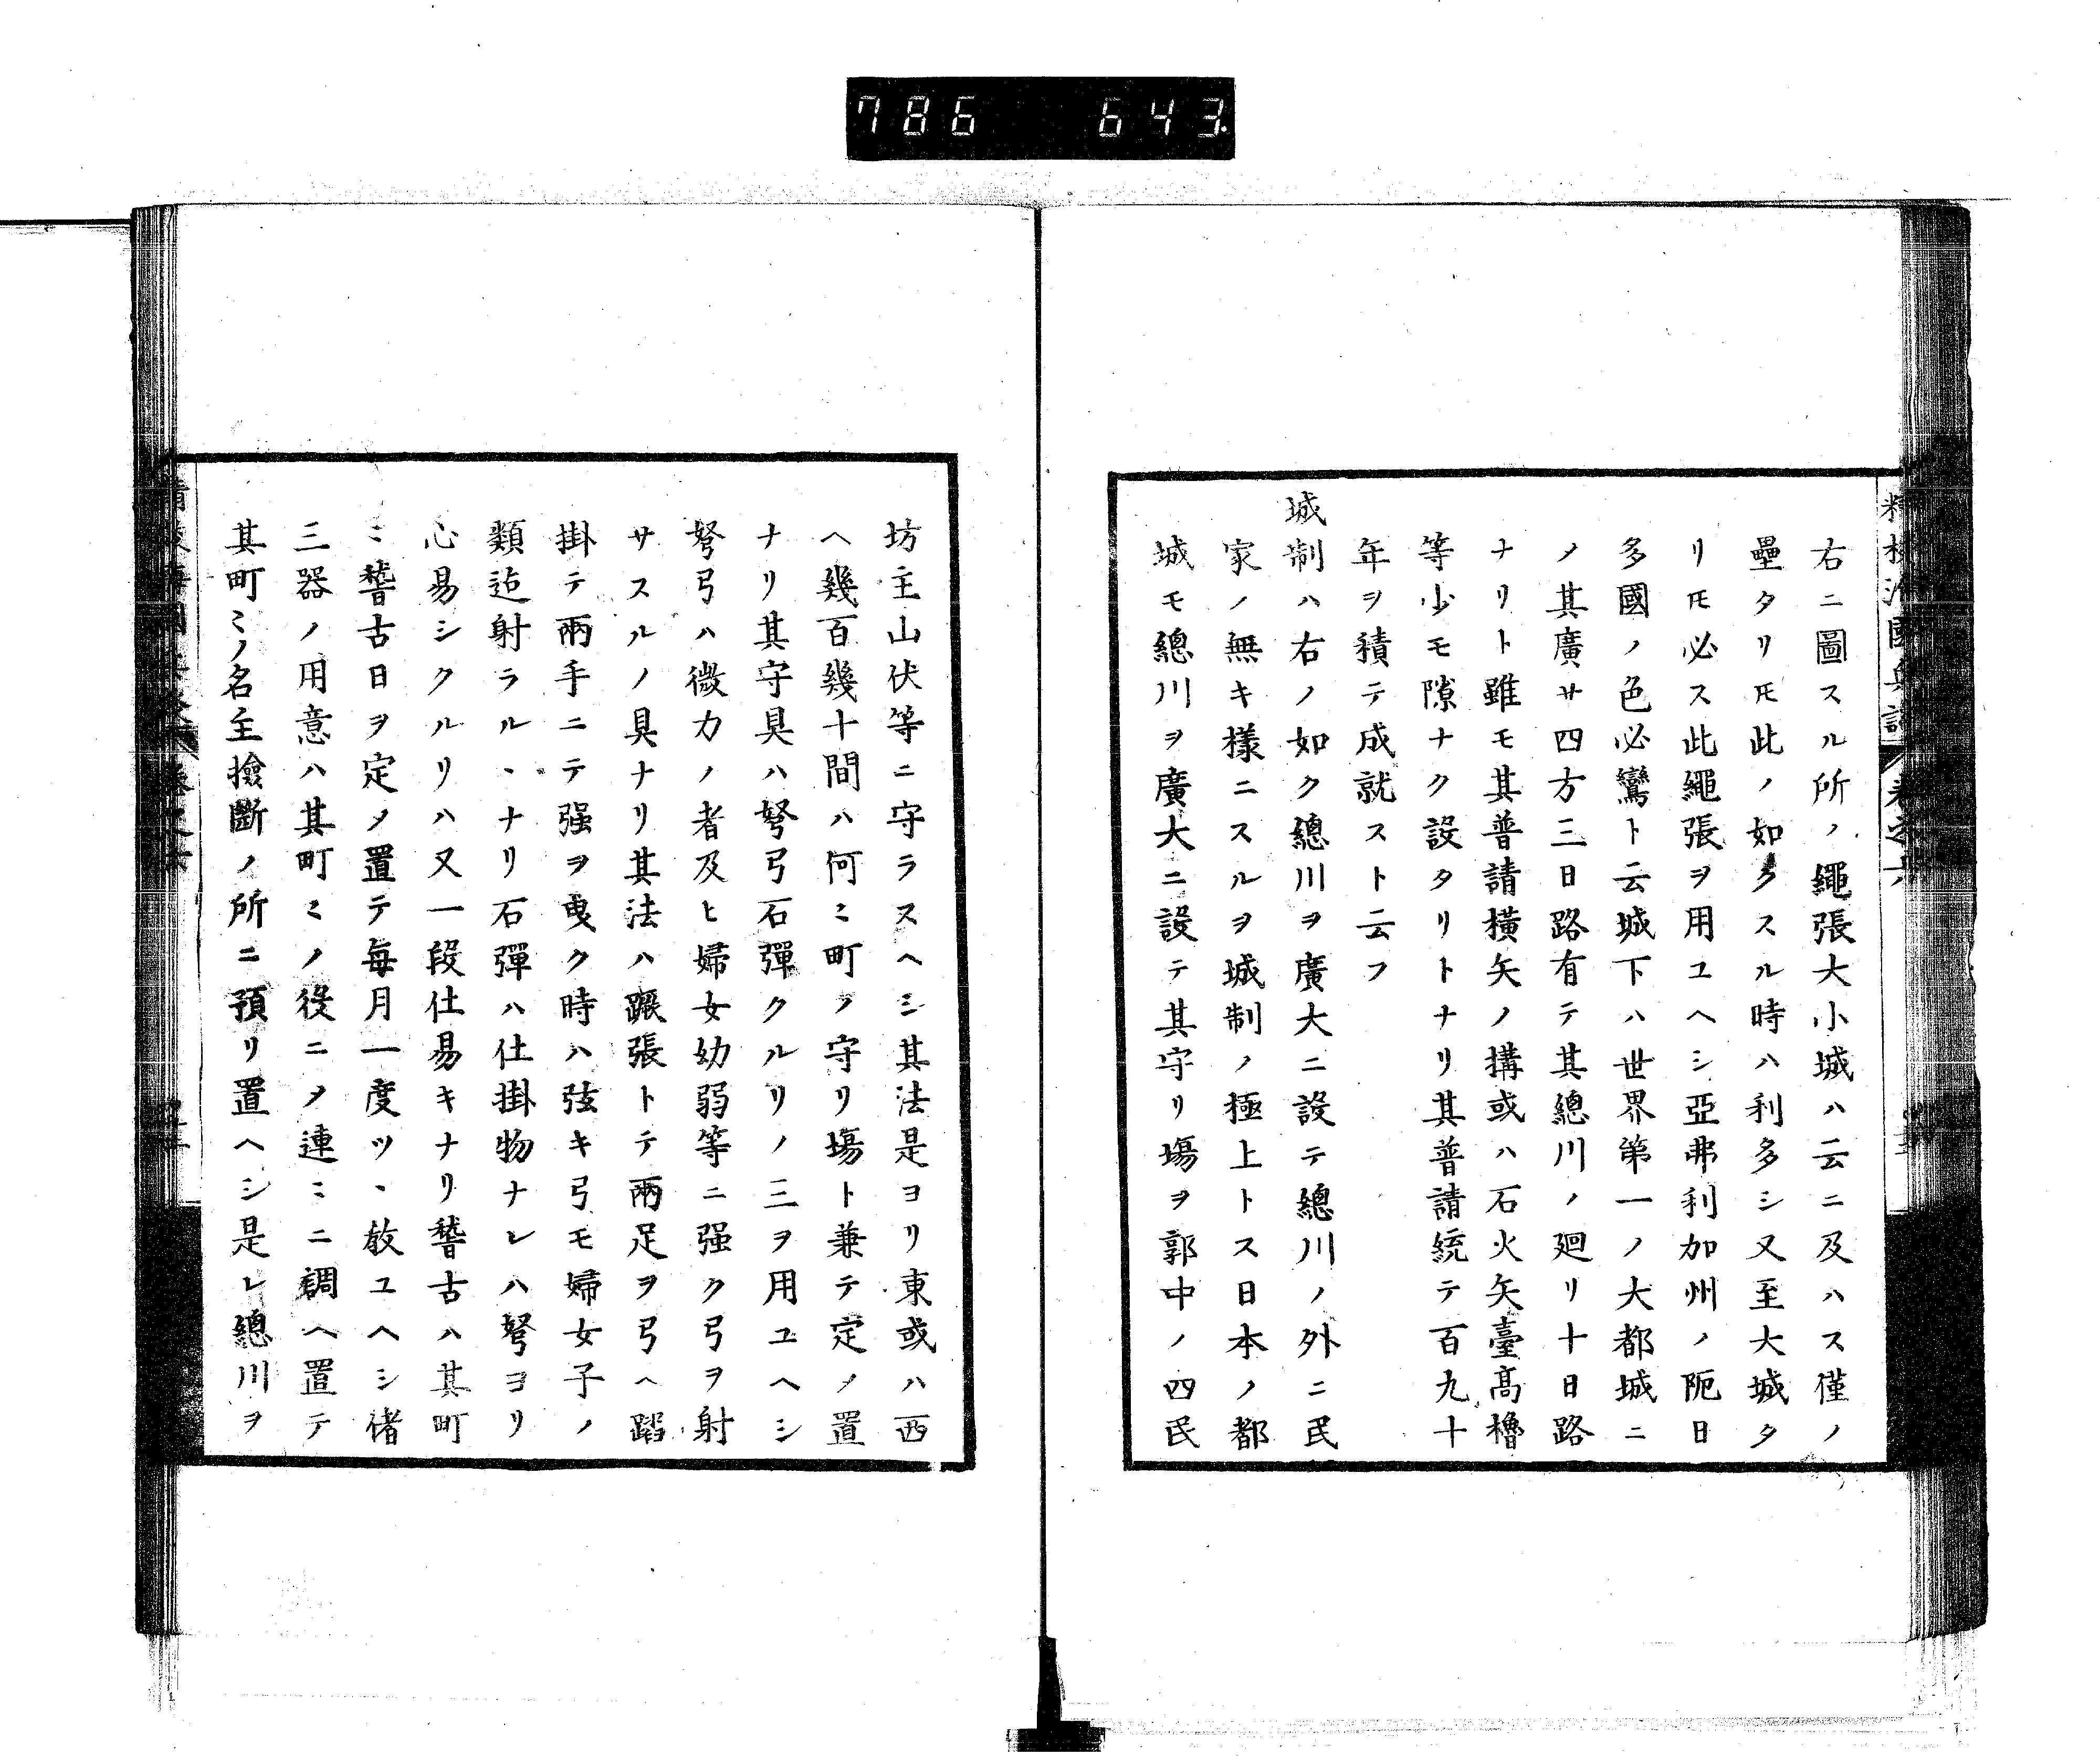 786 643
右ニ圖スル所ノ繩張大小城ハ云ニ及ハス僅ノ
壘タリ𪜈此ノ如クスル時ハ利多シ又至大城タ
リ𪜈必ス此繩張ヲ用ユヘシ亞弗利加州ノ阨日
多國ノ色必鸞ト云城下ハ世界第一ノ大都城ニ
ノ其廣サ四方三日路有テ其總川ノ廻リ十日路
ナリト雖モ其普請橫矢ノ搆或ハ石火矢臺髙櫓
等少モ隙ナク設タリトナリ其普請統テ百九十
年ヲ積テ成就スト云フ
城制ハ右ノ如ク總川ヲ廣大ニ設テ總川ノ外ニ民
家ノ無キ樣ニスルヲ城制ノ極上トス日本ノ都
城モ總川ヲ廣大ニ設テ其守リ塲ヲ郭中ノ四民
坊主山伏等ニ守ラスヘシ其法是ヨリ東或ハ西
ヘ幾百幾十間ハ何〻町ノ守リ塲ト兼テ定メ置
ナリ其守具ハ弩弓石彈クルリノ三ヲ用ユヘシ
弩弓ハ微力ノ者及ヒ婦女幼弱等ニ强ク弓ヲ射
サスルノ具ナリ其法ハ蹶張トテ兩足ヲ弓ヘ蹈
掛テ兩手ニテ强ヲ曳ク時ハ弦キ弓モ婦女子ノ
類迠射ラルヽナリ石彈ハ仕掛物ナレハ弩ヨリ
心易シクルリハ又一段仕易キナリ稽古ハ其町
〻稽古日ヲ定メ置テ每月一度ツヽ敎ユヘシ偖
三器ノ用意ハ其町〻ノ役ニメ連〻ニ調ヘ置テ
其町〻ノ名主撿斷ノ所ニ預リ置ヘシ是レ總川ヲ